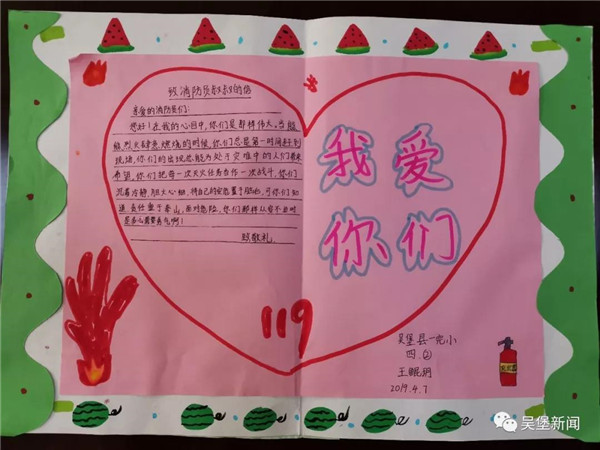 致消防员叔叔的信
亲爱的消防员们:
您好!在我的心目中,你们是那样伟大。当熊
熊烈火肆意燃烧的时候,你们总是第一时间赶到
现场,你们的出现总能为处于灾难中的人们带来
希望,你们把每一次灭火任务当作一次战斗,你们
沉着冷静,胆大心细,将自己的安危置于脑后,可你们知
道责任重于泰山,面对危险,你们那样从容不迫时
是多么需要勇气啊!
致敬礼
我爱
你们
119
吴堡县一完小
四(2)
2019.4.7
吴堡新闻